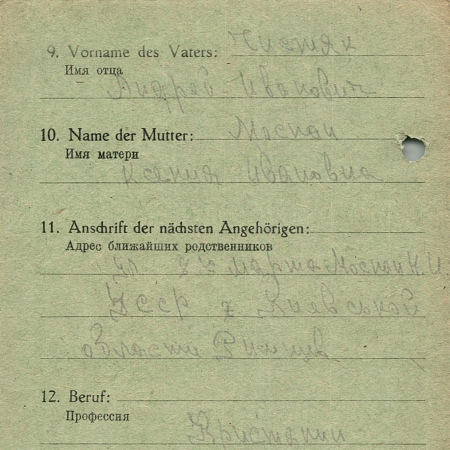 9. Vorname des Vaters: Чистяк
Имя отца
Андрей Иванович
10. Name der Mutter: Москал
Имя матери
Ксения Ивановна
11. Anschrift der nächsten Angehörigen:
Адрес ближайших родственников
марта
УССР Киевской
области
12. Beruf:
Профессия